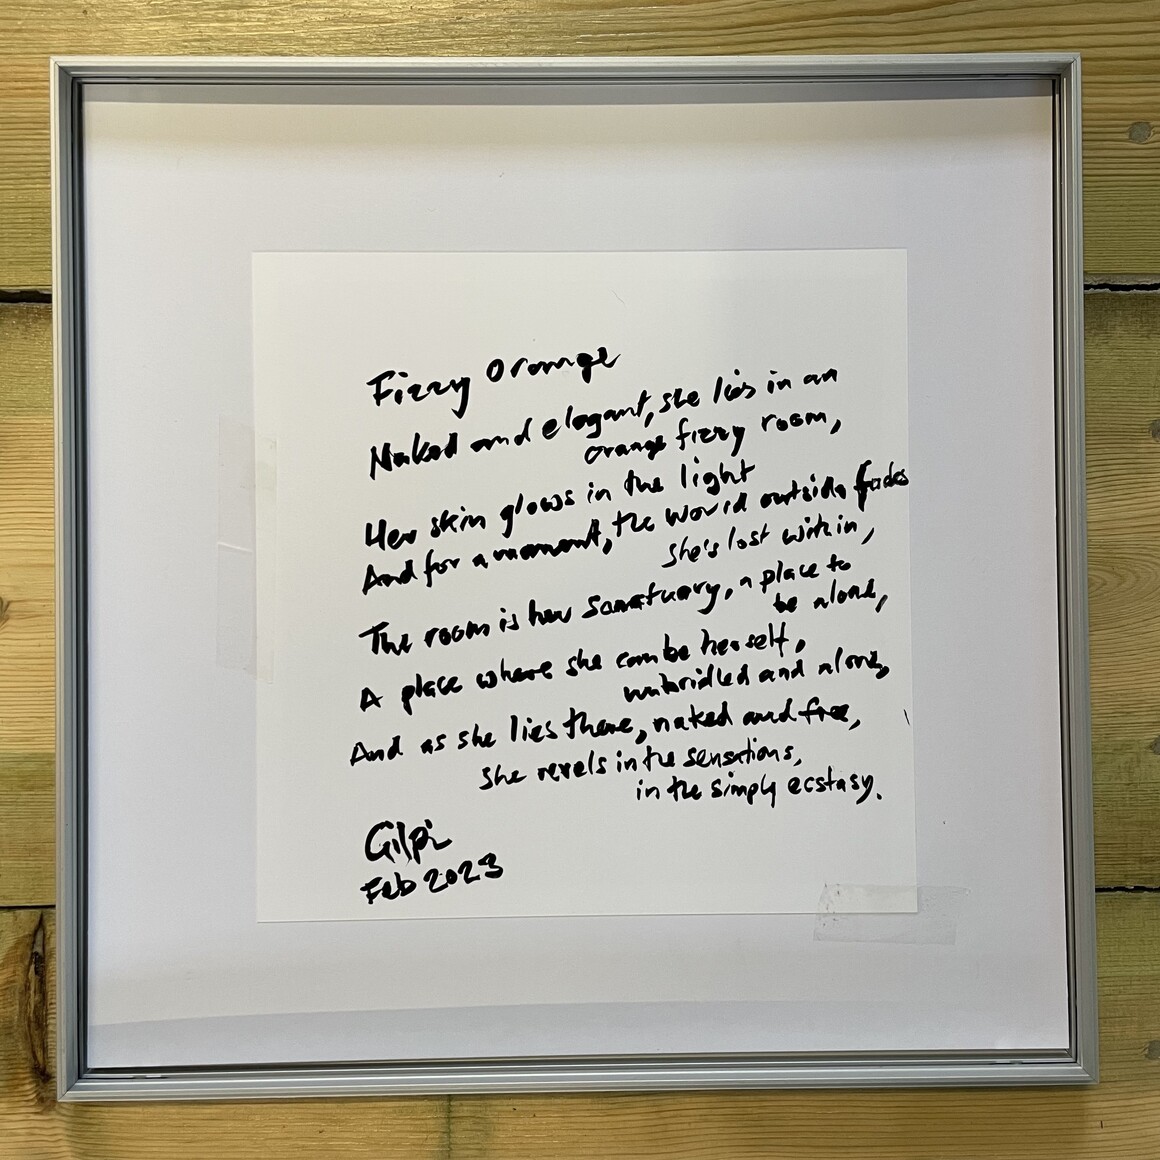 Fizzy Orange
Naked and elegant, she lies in an
orange fizzy room,
Her skin glows in the light
And for a moment, the world outside fades
she's lost within,
The room is her sanctuary, a place to
be alone,
A place where she can be herself,
unbridled and alone,
And as she lies there, naked and free,
she revels in the sensations,
in the simply ecstasy.
Gilpi
Feb 2023